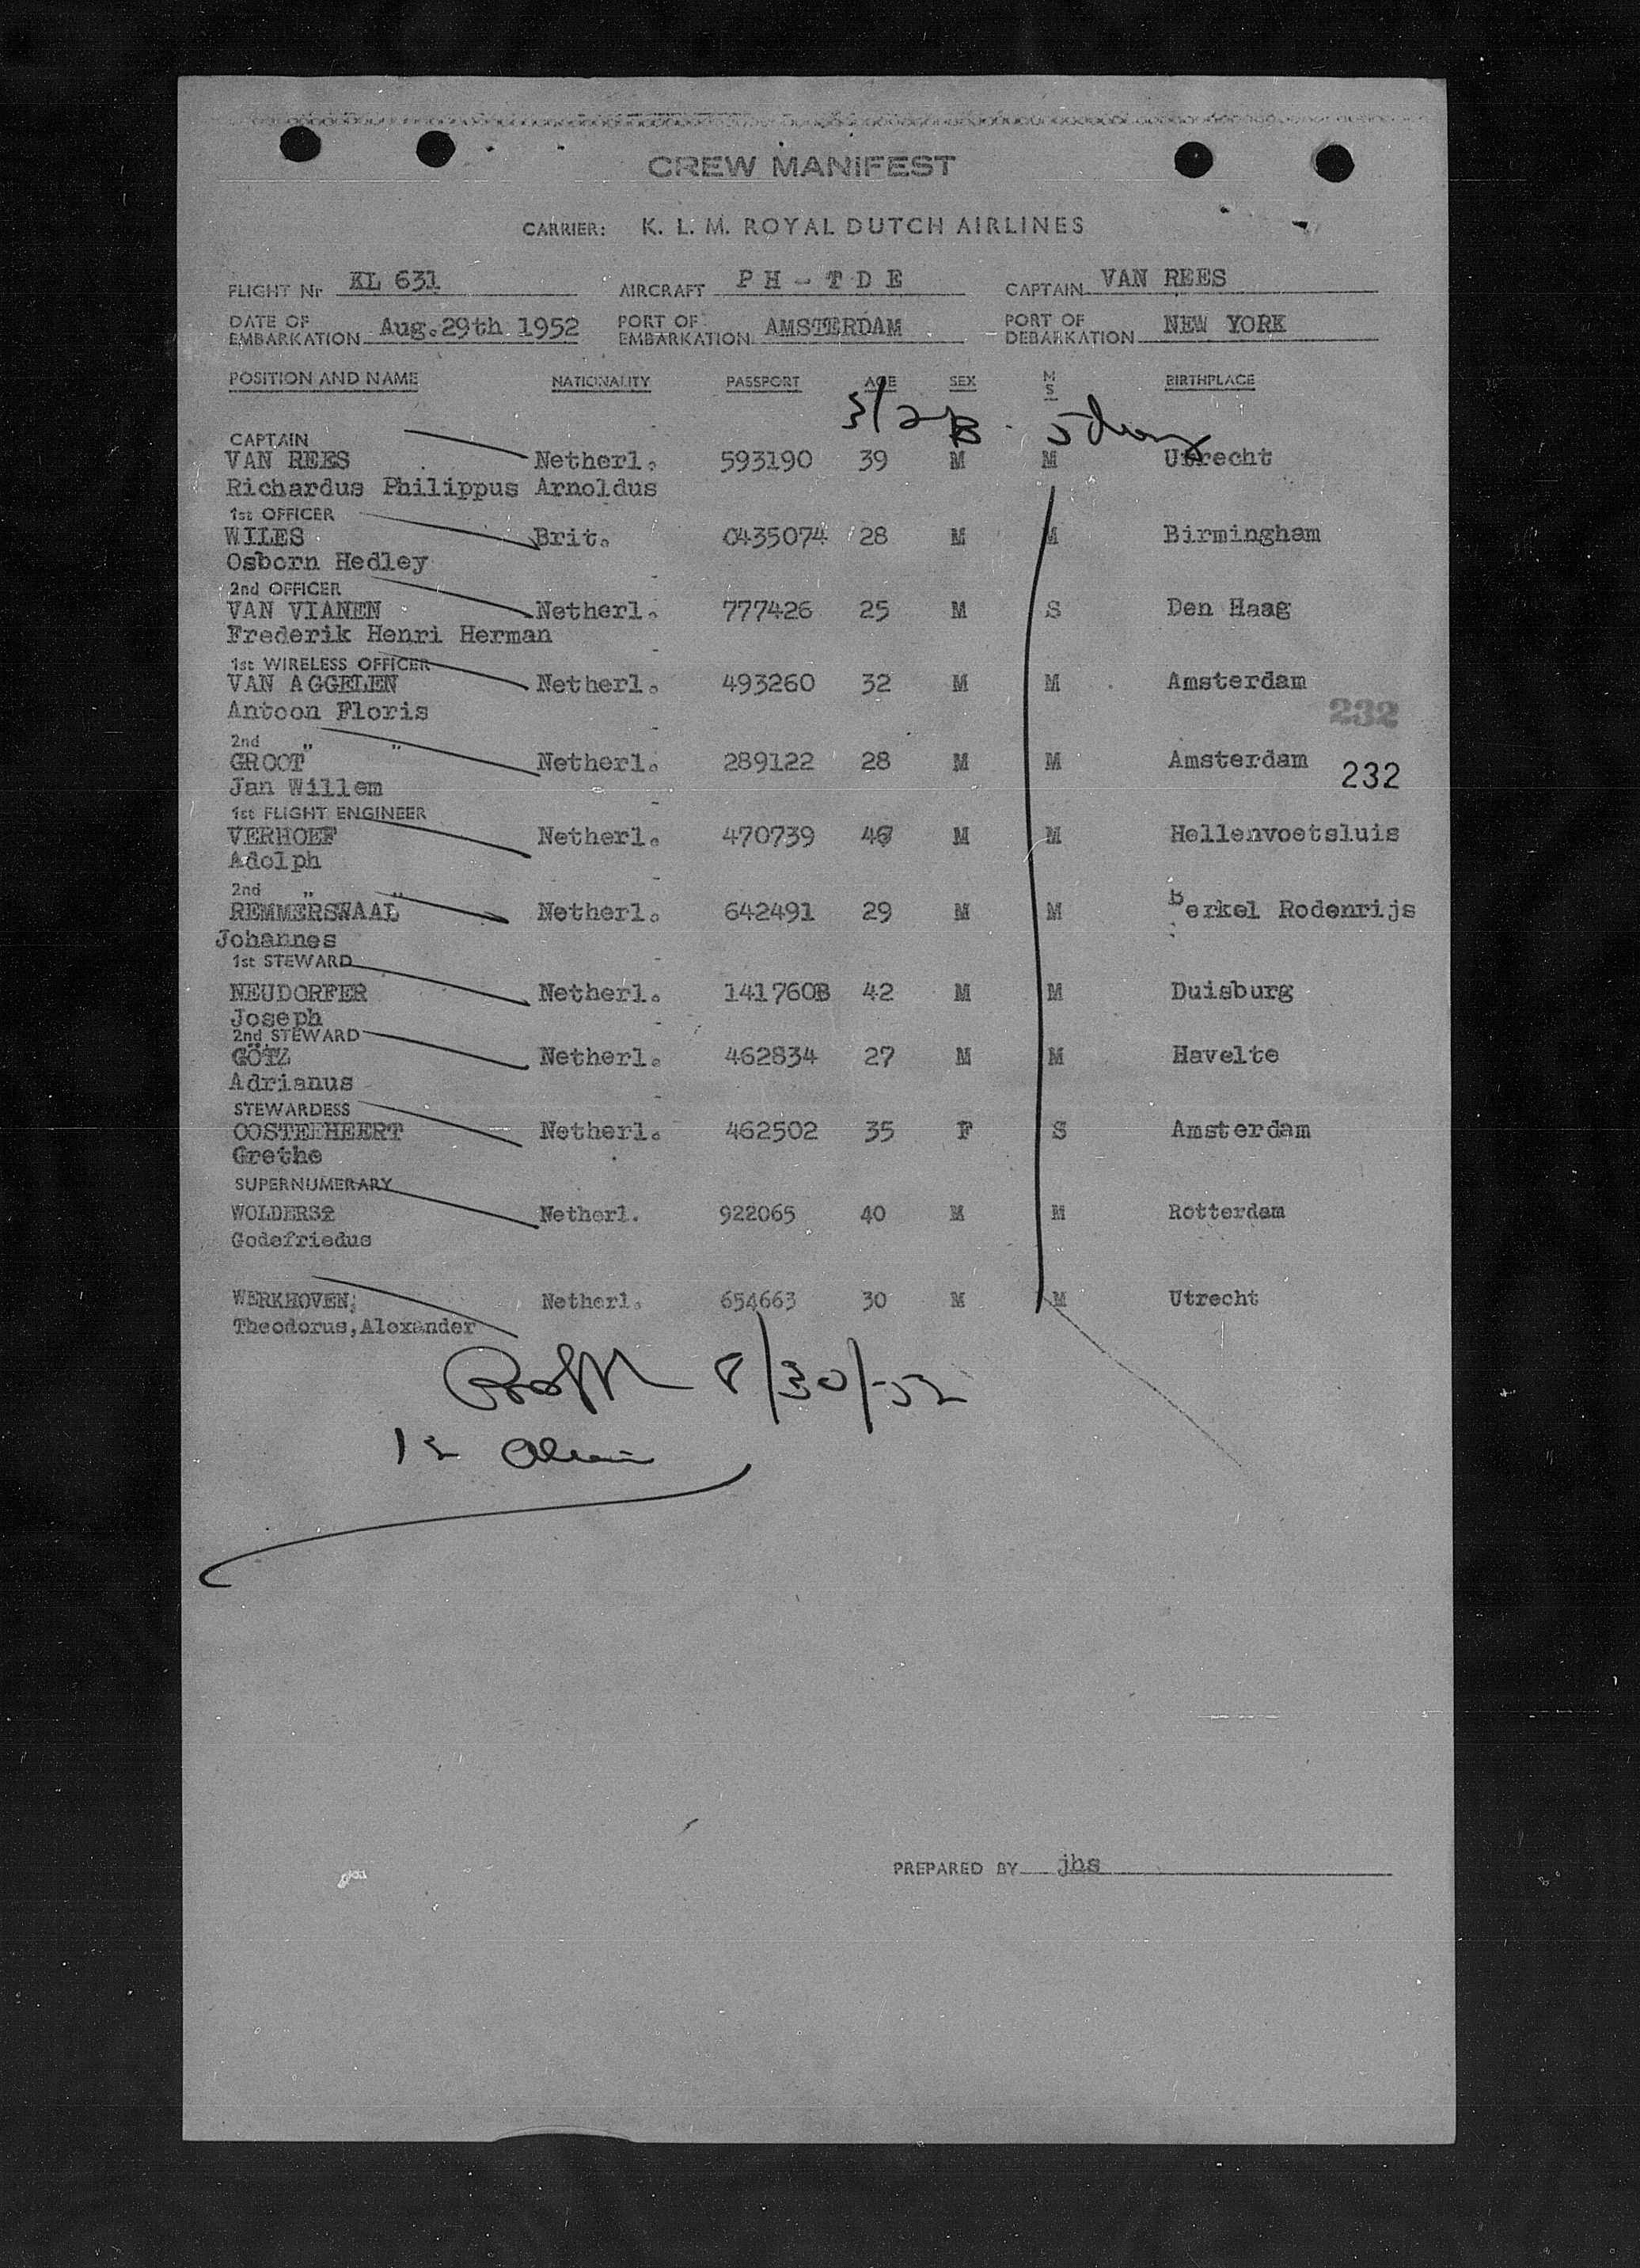 CREW MANIFEST
CARRIER: K. L. M. ROYAL DUTCH AIRLINES
FLIGHT Nr KL 631 AIRCRAFT PH-TDE CAPTAIN VAN REES
DATE OF EMBARKATION Aug.29th 1952 PORT OF EMBARKATION AMSTERDAM PORT OF DEBARKATION NEW YORK
POSITION AND NAME NATIONALITY PASSPORT AGE SEX M S BIRTHPLACE
CAPTAIN
VAN REES Netherl. 593190 39 M M Utrecht
Richardus Philippus Arnoldus
1st OFFICER
WILES Brit. 0435074 28 M M Birmingham
Osborn Hedley
2nd OFFICER
VAN VIANEN Netherl. 777426 25 M S Den Haag
Frederik Henri Herman
1st WIRELESS OFFICER
VAN AGGELEN Netherl. 493260 32 M M Amsterdam
Antoon Floris
232
2nd " "
GROOT Netherl. 289122 28 M M Amsterdam
232
Jan Willem
1st FLIGHT ENGINEER
VERHOEF Netherl. 470739 M M Hellenvoetsluis
Adolph
2nd " "
REMMERSWAAL Netherl. 642491 29 M M Berkel Rodenrijs
Johannes
1st STEWARD
NEUDORFER Netherl. 141760B 42 M M Duisburg
Joseph
2nd STEWARD
GÖTZ Netherl. 462834 27 M M Havelte
Adrianus
STEWARDESS
Netherl. 462502 35 F S Amsterdam
Grethe
SUPERNUMERARY
Netherl. 922065 40 M M Rotterdam
Godefriedus
WERKHOVEN, Netherl. 654663 30 M M Utrecht
Theodorus,Alexander
8/30/-52
12
PREPARED BY jbs